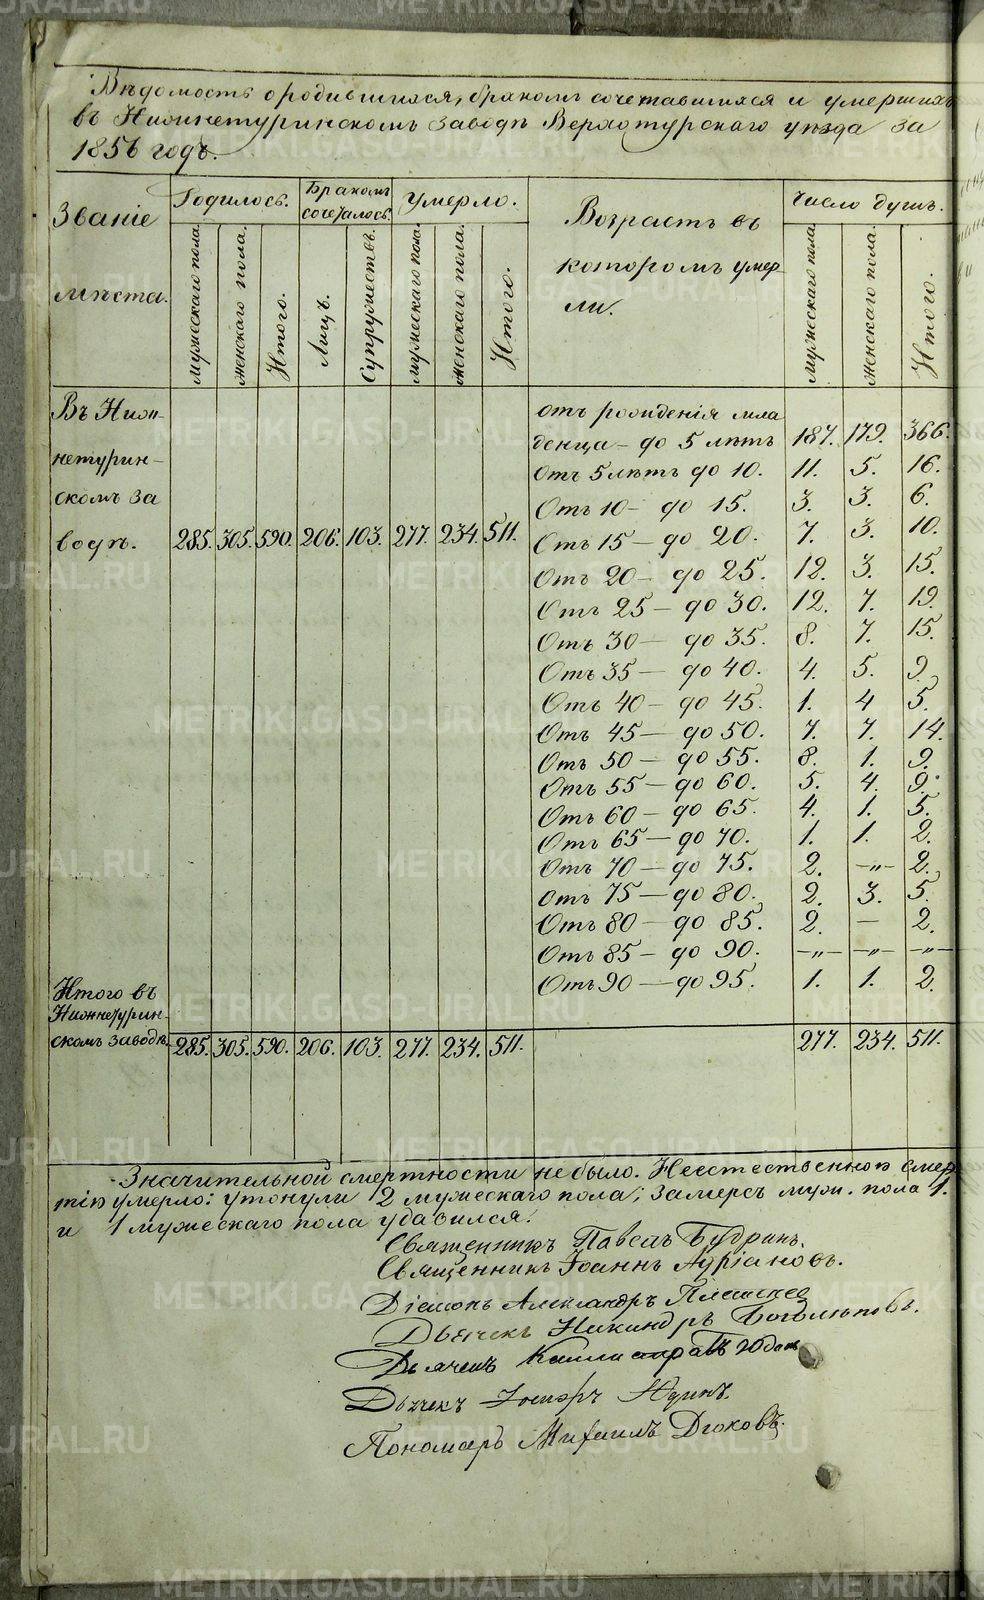 Вѣдомость о родившихся, бракомъ сочетавшихся и умершихъ
въ Нижнетуринскомъ заводѣ Верхотурскаго уѣзда за
1856 годъ.
Званіе мѣста.
Родилось.
Мужескаго пола.
Женскаго пола.
Итого.
Бракомъ сочеталось.
Лицъ.
Супружествъ.
Умерло.
Мужескаго пола.
Женскаго пола.
Итого.
Возрастъ въ
которомъ умер-
ли.
Число душъ.
Мужескаго пола.
Женскаго пола.
Итого.
Въ Ниж-
нетурин-
скомъ за
водѣ. 285. 305. 590. 206. 103. 277. 234. 511.
отъ рожденія мла
денца - до 5 лѣтъ 187. 179. 366.
Отъ 5 лѣтъ до 10. 11. 5. 16.
Отъ 10 - до 15. 3. 3. 6.
Отъ 15 - до 20. 7. 3. 10.
Отъ 20 - до 25. 12. 3. 15.
Отъ 25 - до 30. 12. 7. 19.
Отъ 30 - до 35. 8. 7. 15.
Отъ 35 - до 40. 4. 5. 9.
Отъ 40 - до 45. 1. 4 5.
Отъ 45 - до 50. 7. 7. 14.
Отъ 50 - до 55. 8. 1. 9.
Отъ 55 - до 60. 5. 4. 9.
Отъ 60 - до 65. 4. 1. 5.
Отъ 65 - до 70. 1. 1. 2.
Отъ 70 - до 75. 2. -"- 2.
Отъ 75 - до 80. 2. 3. 5.
Отъ 80 - до 85. 2. - 2.
Отъ 85 - до 90. -"- -"- -"-
Отъ 90 - до 95. 1. 1. 2.
Итого въ
Нижнетурин-
скомъ заводѣ. 285. 305. 590. 206. 103. 277. 234. 511. 277. 234. 511.
Значительной смертности не было. Неестественною смер
тію умерло: утонули 2 мужескаго пола; замерзъ муж. пола 1.
и 1 мужескаго пола удавился.
Священникъ Павелъ Будринъ.
Священникъ Іоаннъ Адріановъ.
Діаконъ Александръ Плешков
Дьячекъ Никандръ Боголюповъ.
Дьячекъ Каллистратъ
Дьячекъ Іосифъ Юдинъ.
Пономарь Михаилъ Дюковъ.
METRIKI.GASO-URAL.RU